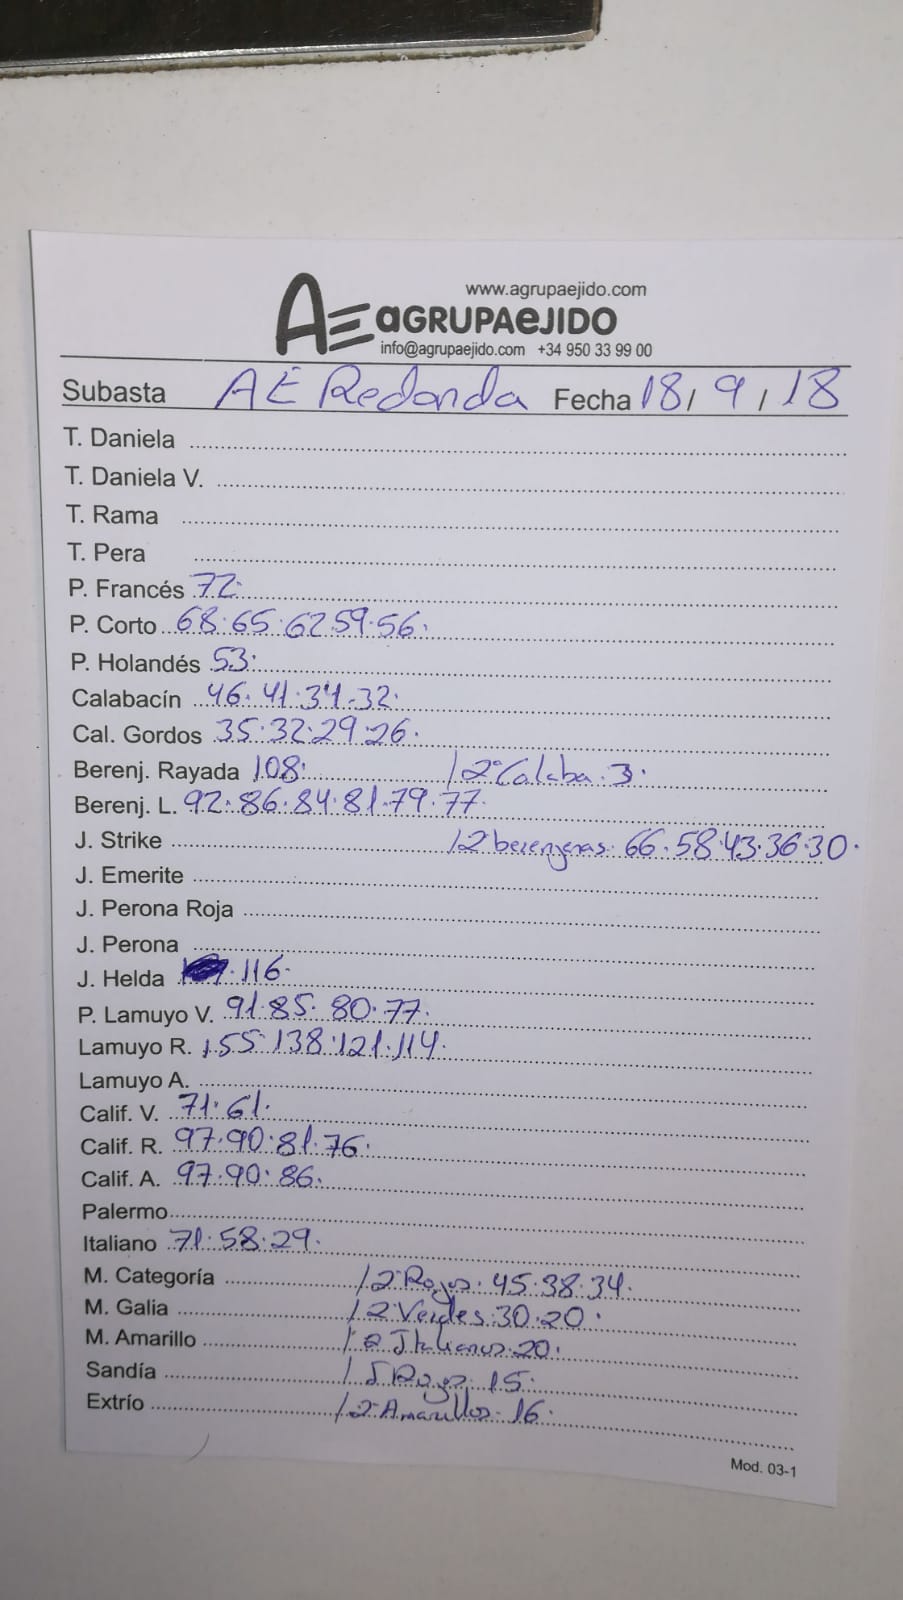 www.agrupaejido.com
AE aGRUPAeJIDO
info@agrupaejido.com +34 950 33 99 00
Subasta AE Redonda Fecha 18/ 9 / 18
T. Daniela
T. Daniela V.
T. Rama
T. Pera
P. Francés 72.
P. Corto 68.65.62.59.56.
P. Holandés 53.
Calabacín 46.41.34.32.
Cal. Gordos 35.32.29.26.
Berenj. Rayada 108. / 2º Calaba. 3.
Berenj. L. 92.86.84.81.79.77.
J. Strike / 2 berenjenas. 66.58.43.36.30.
J. Emerite
J. Perona Roja
J. Perona
J. Helda .116.
P. Lamuyo V. 91.85.80.77.
Lamuyo R. 155.138.121.114.
Lamuyo A.
Calif. V. 71.61.
Calif. R. 97.90.81.76.
Calif. A. 97.90.86.
Palermo
Italiano 71.58.29.
M. Categoría / 2º Rojos. 45.38.34.
M. Galia / 2 Verdes. 30.20.
M. Amarillo / 2 Italianos. 20.
Sandía / Rojos. 15.
Extrío / 2º Amarillos. 16.
Mod. 03-1